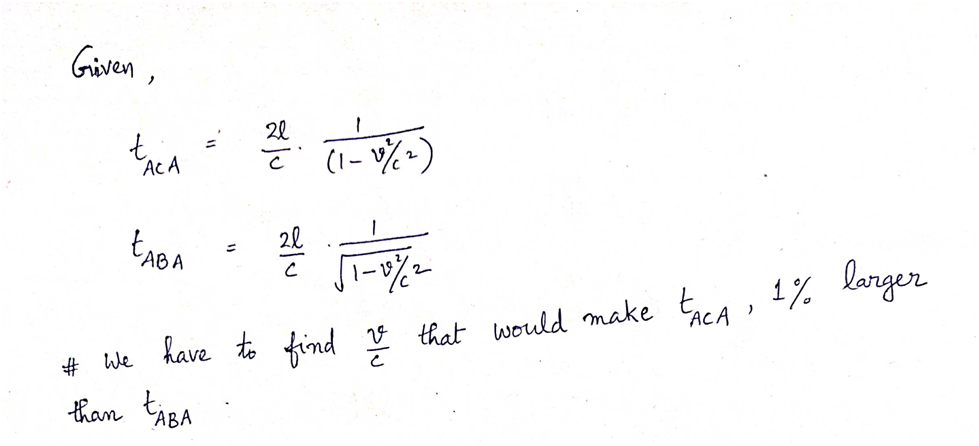 Given,
t_ACA = 2l/c · 1/(1 - v²/c²)
t_ABA = 2l/c · 1/√(1 - v²/c²)
# We have to find v/c that would make t_ACA, 1% larger
than t_ABA.